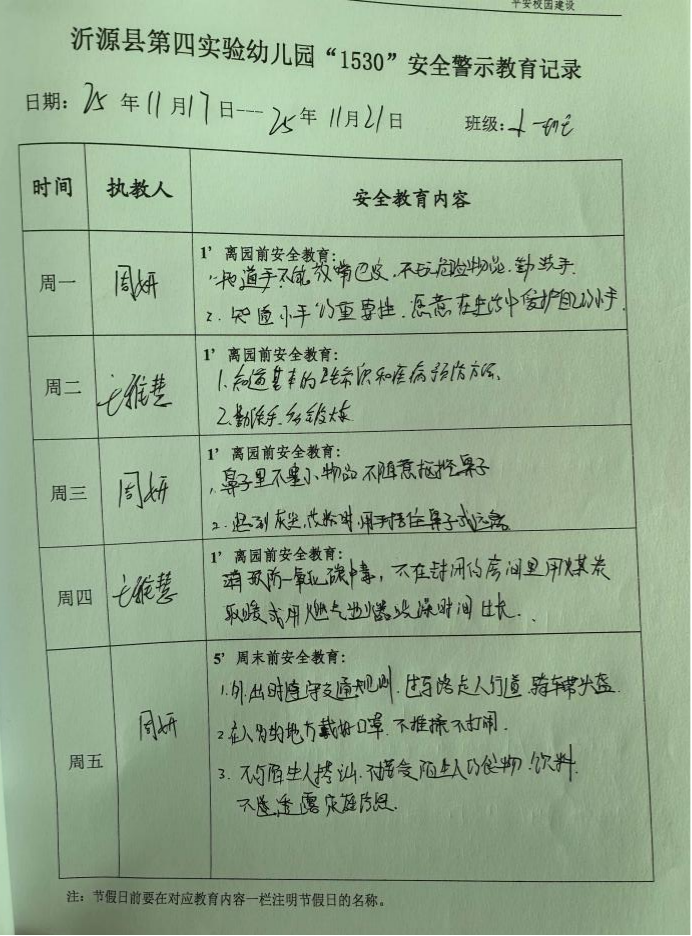 平安校园建设
沂源县第四实验幼儿园“1530”安全警示教育记录
日期: 25 年 11 月 17 日--- 25 年 11 月 21 日 班级: 小一班
时间 执教人 安全教育内容
周一 周妍 1’ 离园前安全教育:
1. 知道手不能放嘴巴皮, 不玩危险物品, 勤洗手.
2. 知道小手的重要性, 愿意在生活中保护自己的小手.
周二 雅慧 1’ 离园前安全教育:
1. 知道基本的卫生常识和疾病预防方法.
2. 勤洗手
周三 周妍 1’ 离园前安全教育:
1. 鼻子里不塞小物品 不随意抠挖鼻子
2. 遇到灰尘 时, 用手捂住鼻子或远离
周四 雅慧 1’ 离园前安全教育:
预防一氧化碳中毒, 不在封闭的房间里用煤炭
取暖或用燃气 洗澡时间过长.
周五 周妍 5’ 周末前安全教育:
1. 外出时遵守交通规则, 过马路走人行道, 骑车带头盔.
2. 在人多的地方戴好口罩, 不推搡不打闹.
3. 不与陌生人搭讪, 不接受陌生人的食物、饮料.
不随意透露家庭信息.
注: 节假日前要在对应教育内容一栏注明节假日的名称。